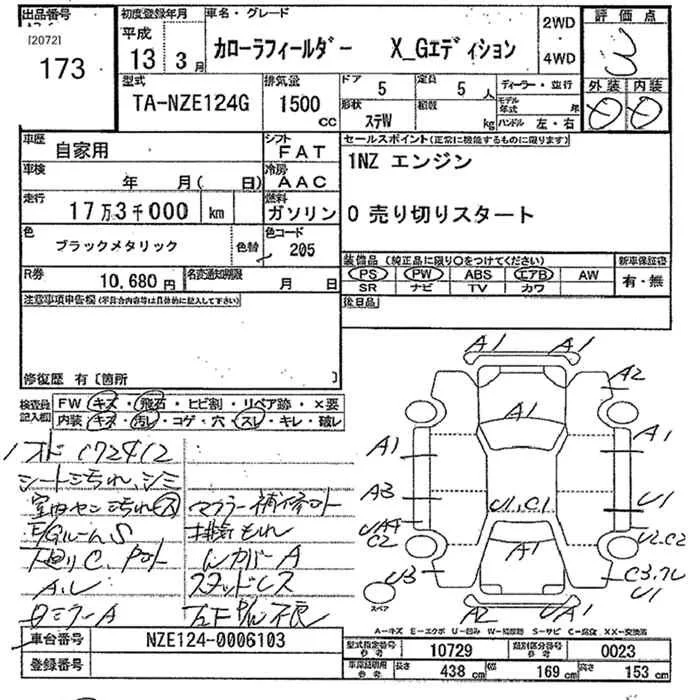 出品番号
[2072]
173
初度登録年月
平成
13 3月
車名・グレード
カローラフィールダー X_Gエディション
2WD
・
4WD
評価点
3
外装 内装
D D
型式
TA-NZE124G
排気量
1500
cc
ドア
5
定員
5人
形状
ステW
積載
kg
ディーラー・並行
モデル年式 年
ハンドル 左・右
車歴
自家用
シフト
FAT
車検
年 月( 日)
冷房
AAC
走行
17万3千000 km
燃料
ガソリン
色
ブラックメタリック
色替
色コード
205
R券
10,680円
名変通知期限
月 日
セールスポイント(正常に機能するものに限ります)
1NZ エンジン
0 売り切りスタート
装備品(純正品に限り○をつけてください)
PS PW ABS エアB AW
SR ナビ TV カワ
新車保証書
有・無
後日品
注意事項申告欄(不具合内容等は具体的に記入して下さい)
修復歴 有〔箇所 〕
検査員記入欄
FW キズ・飛石・ヒビ割・リペア跡・×要
内装 キズ・汚レ・コゲ・穴・スレ・キレ・破レ
シート汚れ、シミ
マフラー補修
E/GルームS
排気もれ
下回りC、
カバーA
A.U
スタッドレス
ミラーA
不良
A1
A1
A2
A1
A1
A1
A3
U1,C1
U1
UA4
C2
U2,C2
A1
U3
U1
A2
UA1
スペア
A-キズ E-エクボ U-凹み W-補修跡 S-サビ C-腐食 XX-交換済
車台番号
NZE124-0006103
登録番号
型式指定番号
参考
10729
類別区分番号
参考
0023
車庫証明用
参考
長さ 438 cm 幅 169 cm 高さ 153 cm